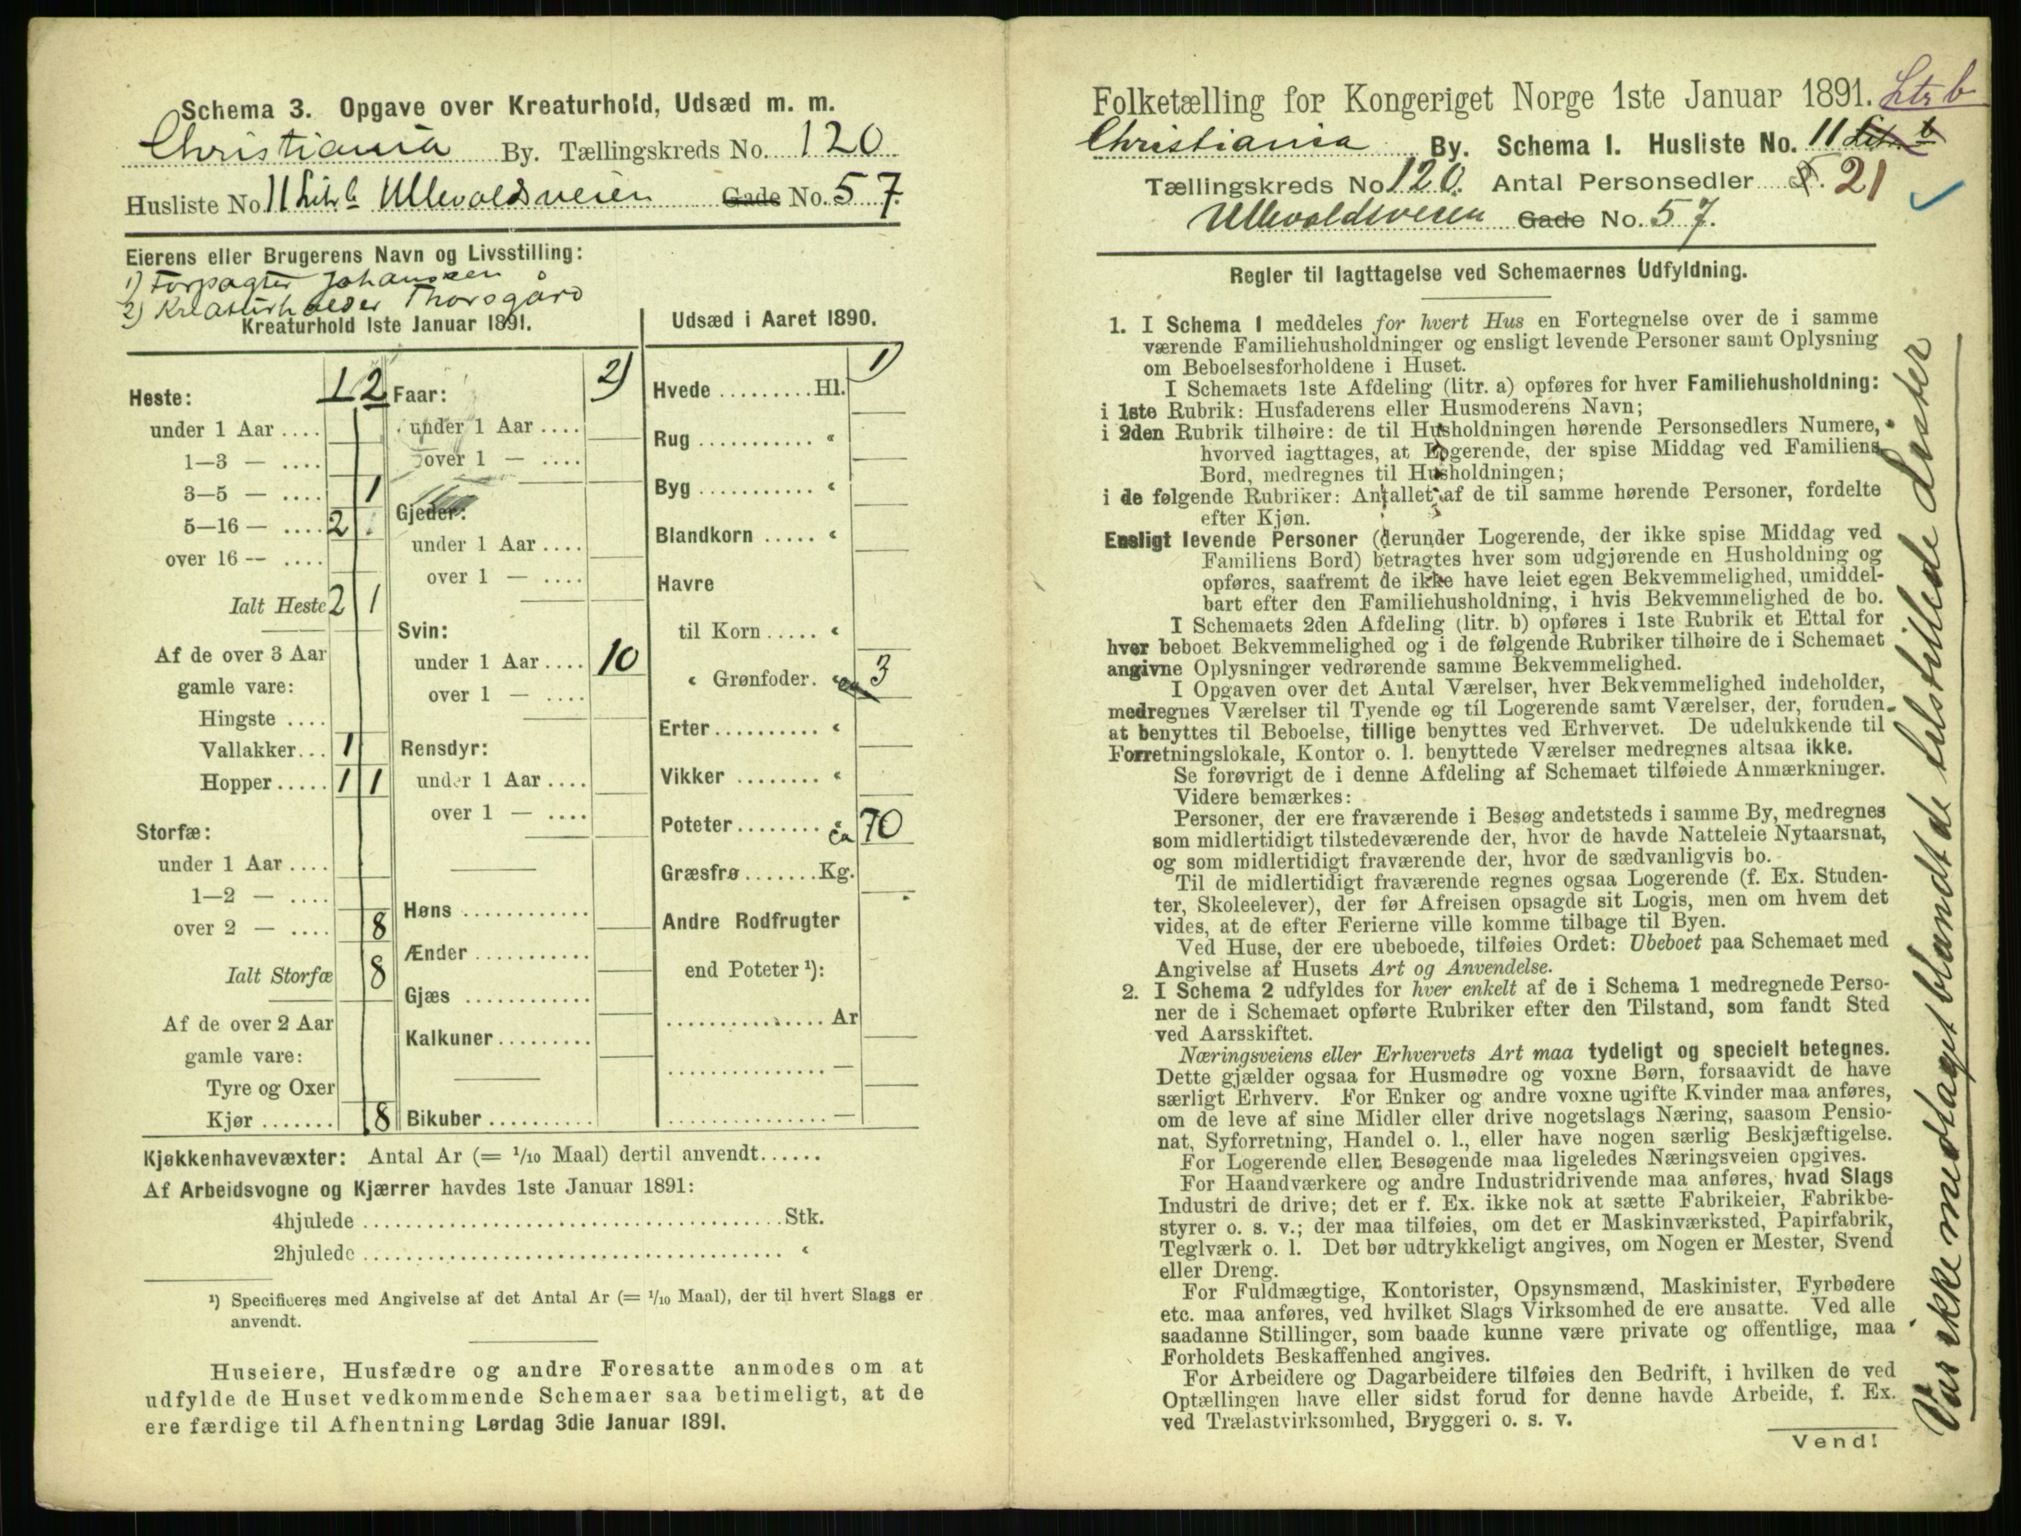 Schema 3. Opgave over Kreaturhold, Udsæd m. m.
Christiania By. Tællingskreds No. 120
Husliste No. 11 Litr b Ullevoldsveien Gade No. 57.
Eierens eller Brugerens Navn og Livsstilling:
1) Forpagter Johanssen
2) Kreaturholder Thorsgård
Kreaturhold 1ste Januar 1891.
1 2
Heste:
under 1 Aar ....
1—3 — ....
3—5 — .... 1
5—16 — .... 2
over 16 — ....
Ialt Heste 2 1
Af de over 3 Aar
gamle vare:
Hingste ....
Vallakker... 1
Hopper..... 1 1
Storfæ:
under 1 Aar ....
1—2 — ....
over 2 — .... 8
Ialt Storfæ 8
Af de over 2 Aar
gamle vare:
Tyre og Oxer
Kjør ....... 8
2)
Faar:
under 1 Aar ....
over 1 — ....
Gjeder:
under 1 Aar ....
over 1 — ....
Svin:
under 1 Aar .... 10
over 1 — ....
Rensdyr:
under 1 Aar ....
over 1 — ....
Høns ............
Ænder ...........
Gjæs ............
Kalkuner.........
Bikuber ..........
Udsæd i Aaret 1890.
1)
Hvede .........Hl.
Rug ........... "
Byg ........... "
Blandkorn ..... "
Havre
til Korn ..... "
" Grønfoder. " ca 3
Erter.......... "
Vikker ........ "
Poteter........ " ca 70
Græsfrø.......Kg.
Andre Rodfrugter
end Poteter ¹):
............... Ar
............... —
............... —
Kjøkkenhavevæxter: Antal Ar (= 1/10 Maal) dertil anvendt......
Af Arbeidsvogne og Kjærrer havdes 1ste Januar 1891:
4hjulede ........................................Stk.
2hjulede ........................................ "
¹) Specificeres med Angivelse af det Antal Ar (= 1/10 Maal), der til hvert Slags er
anvendt.
Huseiere, Husfædre og andre Foresatte anmodes om at
udfylde de Huset vedkommende Schemaer saa betimeligt, at de
ere færdige til Afhentning Lørdag 3die Januar 1891.
Folketælling for Kongeriget Norge 1ste Januar 1891. Ltr b
Christiania By. Schema 1. Husliste No. 11 Litr b
Tællingskreds No 120. Antal Personsedler 21
Ullevoldsveien Gade No. 57.
Regler til Iagttagelse ved Schemaernes Udfyldning.
1. I Schema 1 meddeles for hvert Hus en Fortegnelse over de i samme
værende Familiehusholdninger og ensligt levende Personer samt Oplysning
om Beboelsesforholdene i Huset.
I Schemaets 1ste Afdeling (litr. a) opføres for hver Familiehusholdning:
i 1ste Rubrik: Husfaderens eller Husmoderens Navn;
i 2den Rubrik tilhøire: de til Husholdningen hørende Personsedlers Numere,
hvorved iagttages, at Logerende, der spise Middag ved Familiens
Bord, medregnes til Husholdningen;
i de følgende Rubriker: Antallet af de til samme hørende Personer, fordelte
efter Kjøn.
Ensligt levende Personer (derunder Logerende, der ikke spise Middag ved
Familiens Bord) betragtes hver som udgjørende en Husholdning og
opføres, saafremt de ikke have leiet egen Bekvemmelighed, umiddel-
bart efter den Familiehusholdning, i hvis Bekvemmelighed de bo.
I Schemaets 2den Afdeling (litr. b) opføres i 1ste Rubrik et Ettal for
hver beboet Bekvemmelighed og i de følgende Rubriker tilhøire de i Schemaet
angivne Oplysninger vedrørende samme Bekvemmelighed.
I Opgaven over det Antal Værelser, hver Bekvemmelighed indeholder,
medregnes Værelser til Tyende og til Logerende samt Værelser, der, foruden
at benyttes til Beboelse, tillige benyttes ved Erhvervet. De udelukkende til
Forretningslokale, Kontor o. l. benyttede Værelser medregnes altsaa ikke.
Se forøvrigt de i denne Afdeling af Schemaet tilføiede Anmærkninger.
Videre bemærkes:
Personer, der ere fraværende i Besøg andetsteds i samme By, medregnes
som midlertidigt tilstedeværende der, hvor de havde Natteleie Nytaarsnat,
og som midlertidigt fraværende der, hvor de sædvanligvis bo.
Til de midlertidigt fraværende regnes ogsaa Logerende (f. Ex. Studen-
ter, Skoleelever), der før Afreisen opsagde sit Logis, men om hvem det
vides, at de efter Ferierne ville komme tilbage til Byen.
Ved Huse, der ere ubeboede, tilføies Ordet: Ubeboet paa Schemaet med
Angivelse af Husets Art og Anvendelse.
2. I Schema 2 udfyldes for hver enkelt af de i Schema 1 medregnede Perso-
ner de i Schemaet opførte Rubriker efter den Tilstand, som fandt Sted
ved Aarsskiftet.
Næringsveiens eller Erhvervets Art maa tydeligt og specielt betegnes.
Dette gjælder ogsaa for Husmødre og voxne Børn, forsaavidt de have
særligt Erhverv. For Enker og andre voxne ugifte Kvinder maa anføres,
om de leve af sine Midler eller drive nogetslags Næring, saasom Pensio-
nat, Syforretning, Handel o. l., eller have nogen særlig Beskjæftigelse.
For Logerende eller Besøgende maa ligeledes Næringsveien opgives.
For Haandværkere og andre Industridrivende maa anføres, hvad Slags
Industri de drive; det er f. Ex. ikke nok at sætte Fabrikeier, Fabrikbe-
styrer o. s. v.; der maa tilføies, om det er Maskinværksted, Papirfabrik,
Teglværk o. l. Det bør udtrykkeligt angives, om Nogen er Mester, Svend
eller Dreng.
For Fuldmægtige, Kontorister, Opsynsmænd, Maskinister, Fyrbødere
etc. maa anføres, ved hvilket Slags Virksomhed de ere ansatte. Ved alle
saadanne Stillinger, som baade kunne være private og offentlige, maa
Forholdets Beskaffenhed angives.
For Arbeidere og Dagarbeidere tilføies den Bedrift, i hvilken de ved
Optællingen have eller sidst forud for denne havde Arbeide, f. Ex.
ved Trælastvirksomhed, Bryggeri o. s. v.
Vend!
Var ikke medtaget blandt de tilstillede Lister